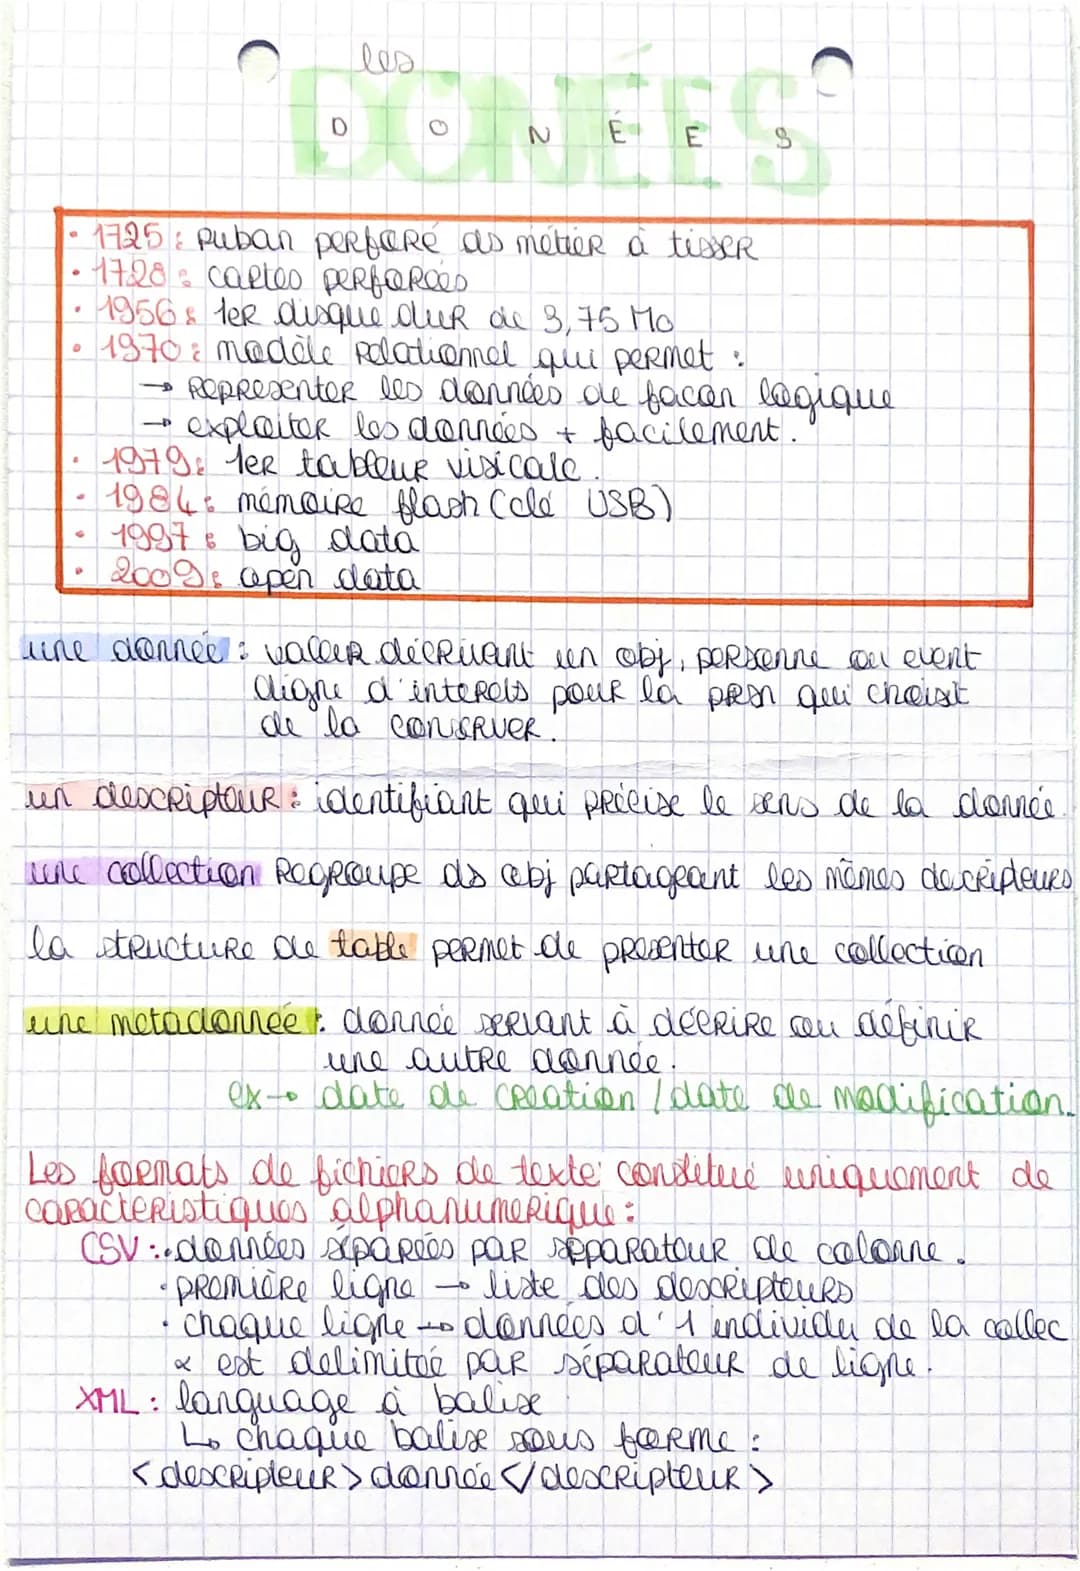 les
DONÉES
D O N É E S
• 1725 : Ruban perforé ds métier à tisser
• 1728 : cartes perforées
• 1956 : 1er disque dur de 3,75 Mo
• 1970 : modèle relationnel qui permet :
→ représenter les données de facon logique
→ exploiter les données + facilement.
• 1979 : 1er tableur visicalc.
• 1984 : mémoire flash (clé USB)
• 1997 : big data
• 2009 : open data
une donnée : valeur décrivant un obj, personne ou event
digne d'interets pour la prsn qui choisit
de la conserver.
un descripteur : identifiant qui précise le sens de la donnée.
une collection regroupe ds obj partageant les mêmes descripteurs
la structure de table permet de présenter une collection
une metadonnée : donnée servant à décrire ou définir
une autre donnée.
ex → date de création / date de modification.
Les formats de fichiers de texte : constitué uniquement de
caractéristiques alphanumérique :
CSV : • données séparées par séparateur de colonne.
• première ligne → liste des descripteurs
• chaque ligne → données d'1 individu de la collec
& est délimitée par séparateur de ligne.
XML : language à balise
↳ chaque balise sous forme :
<descripteur> donnée </descripteur>